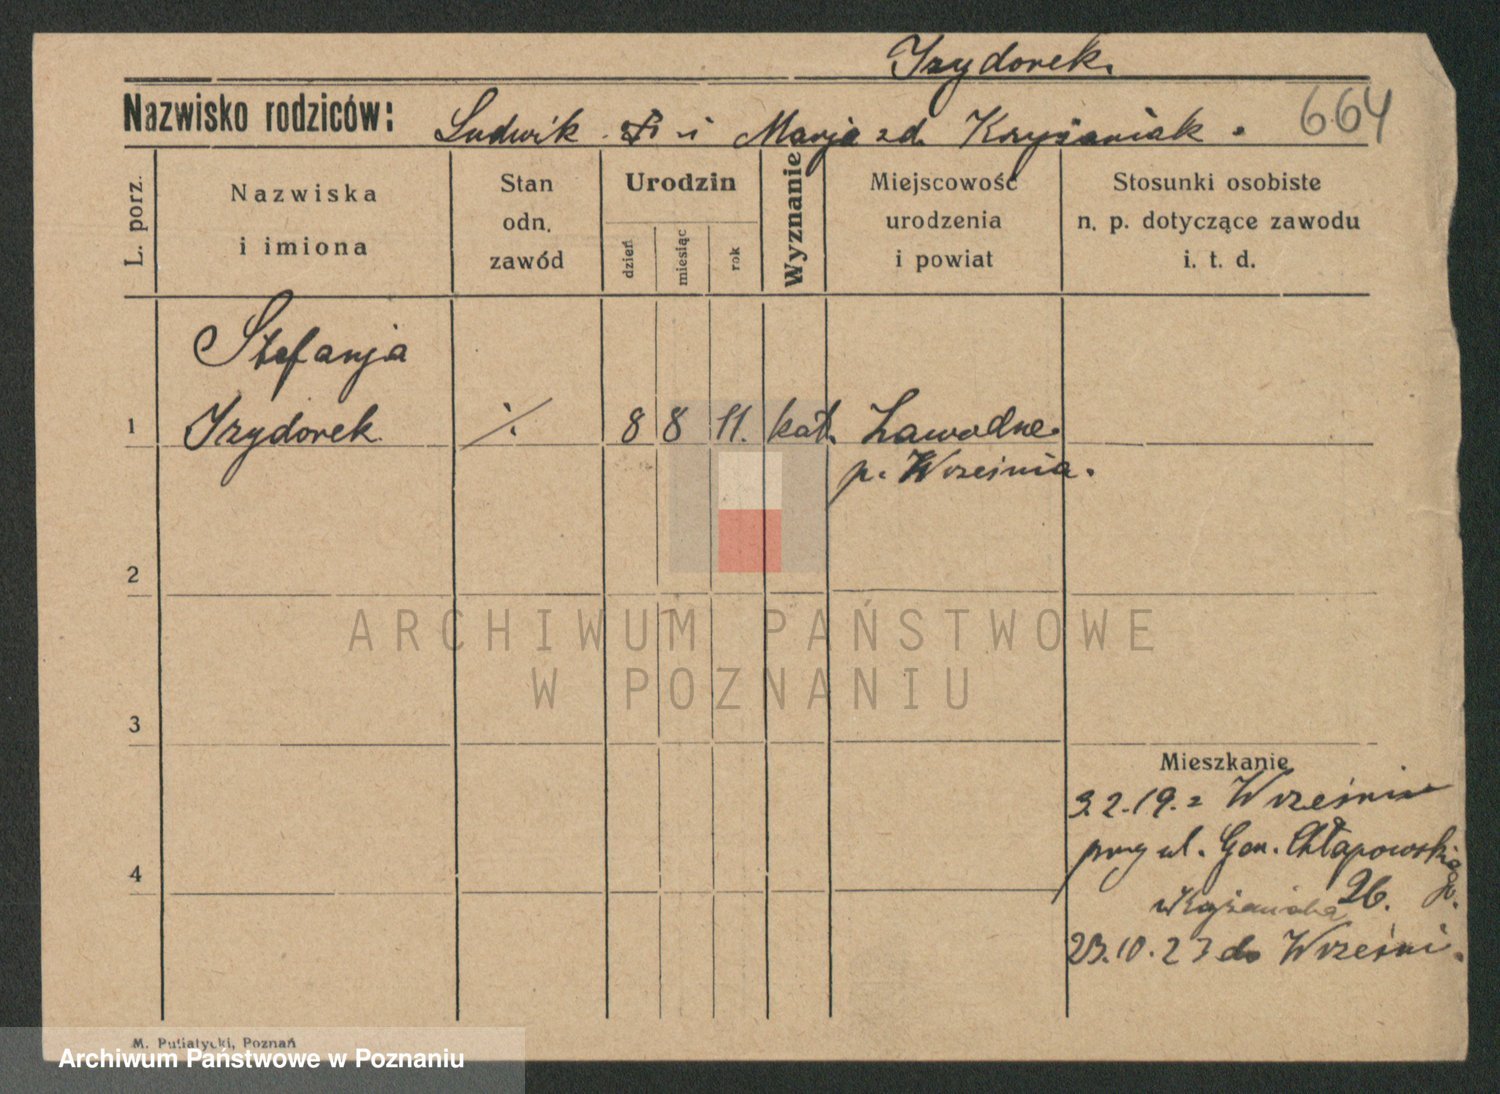 Izydorek.
Nazwisko rodziców: Ludwik i Marja zd. Krzyżaniak.
664
L. porz.
Nazwiska
i imiona
Stan
odn.
zawód
Urodzin
dzień
miesiąc
rok
Wyznanie
Miejscowość
urodzenia
i powiat
Stosunki osobiste
n. p. dotyczące zawodu
i. t. d.
Stefanja
1 Izydorek ./. 8 8 11. kat. Zawodne
p. Września.
2
ARCHIWUM PAŃSTWOWE
W POZNANIU
3
Mieszkanie
3.2.19. z Wrześni
przy ul. Gen. Chłapowskiego.
4
26.
23.10.23 do Wrześni.
M. Putiatycki, Poznań
Archiwum Państwowe w Poznaniu